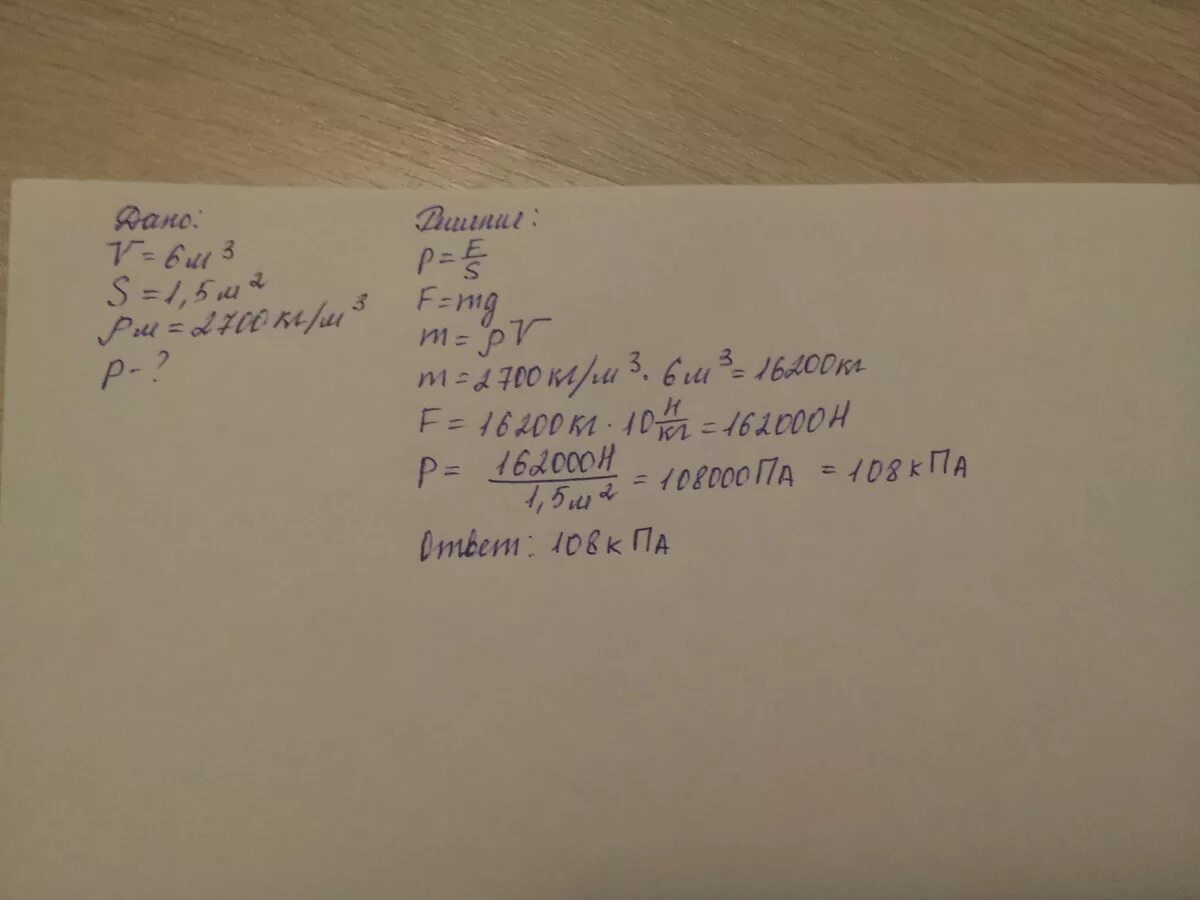 Дано:
V = 6м³
S = 1,5м²
ρм = 2700кг/м³
p - ?
Решение:
p = F/S
F = mg
m = ρV
m = 2700кг/м³ · 6м³ = 16200кг
F = 16200кг · 10 Н/кг = 162000Н
P = 162000Н/1,5м² = 108000ПА = 108кПА
Ответ: 108кПА